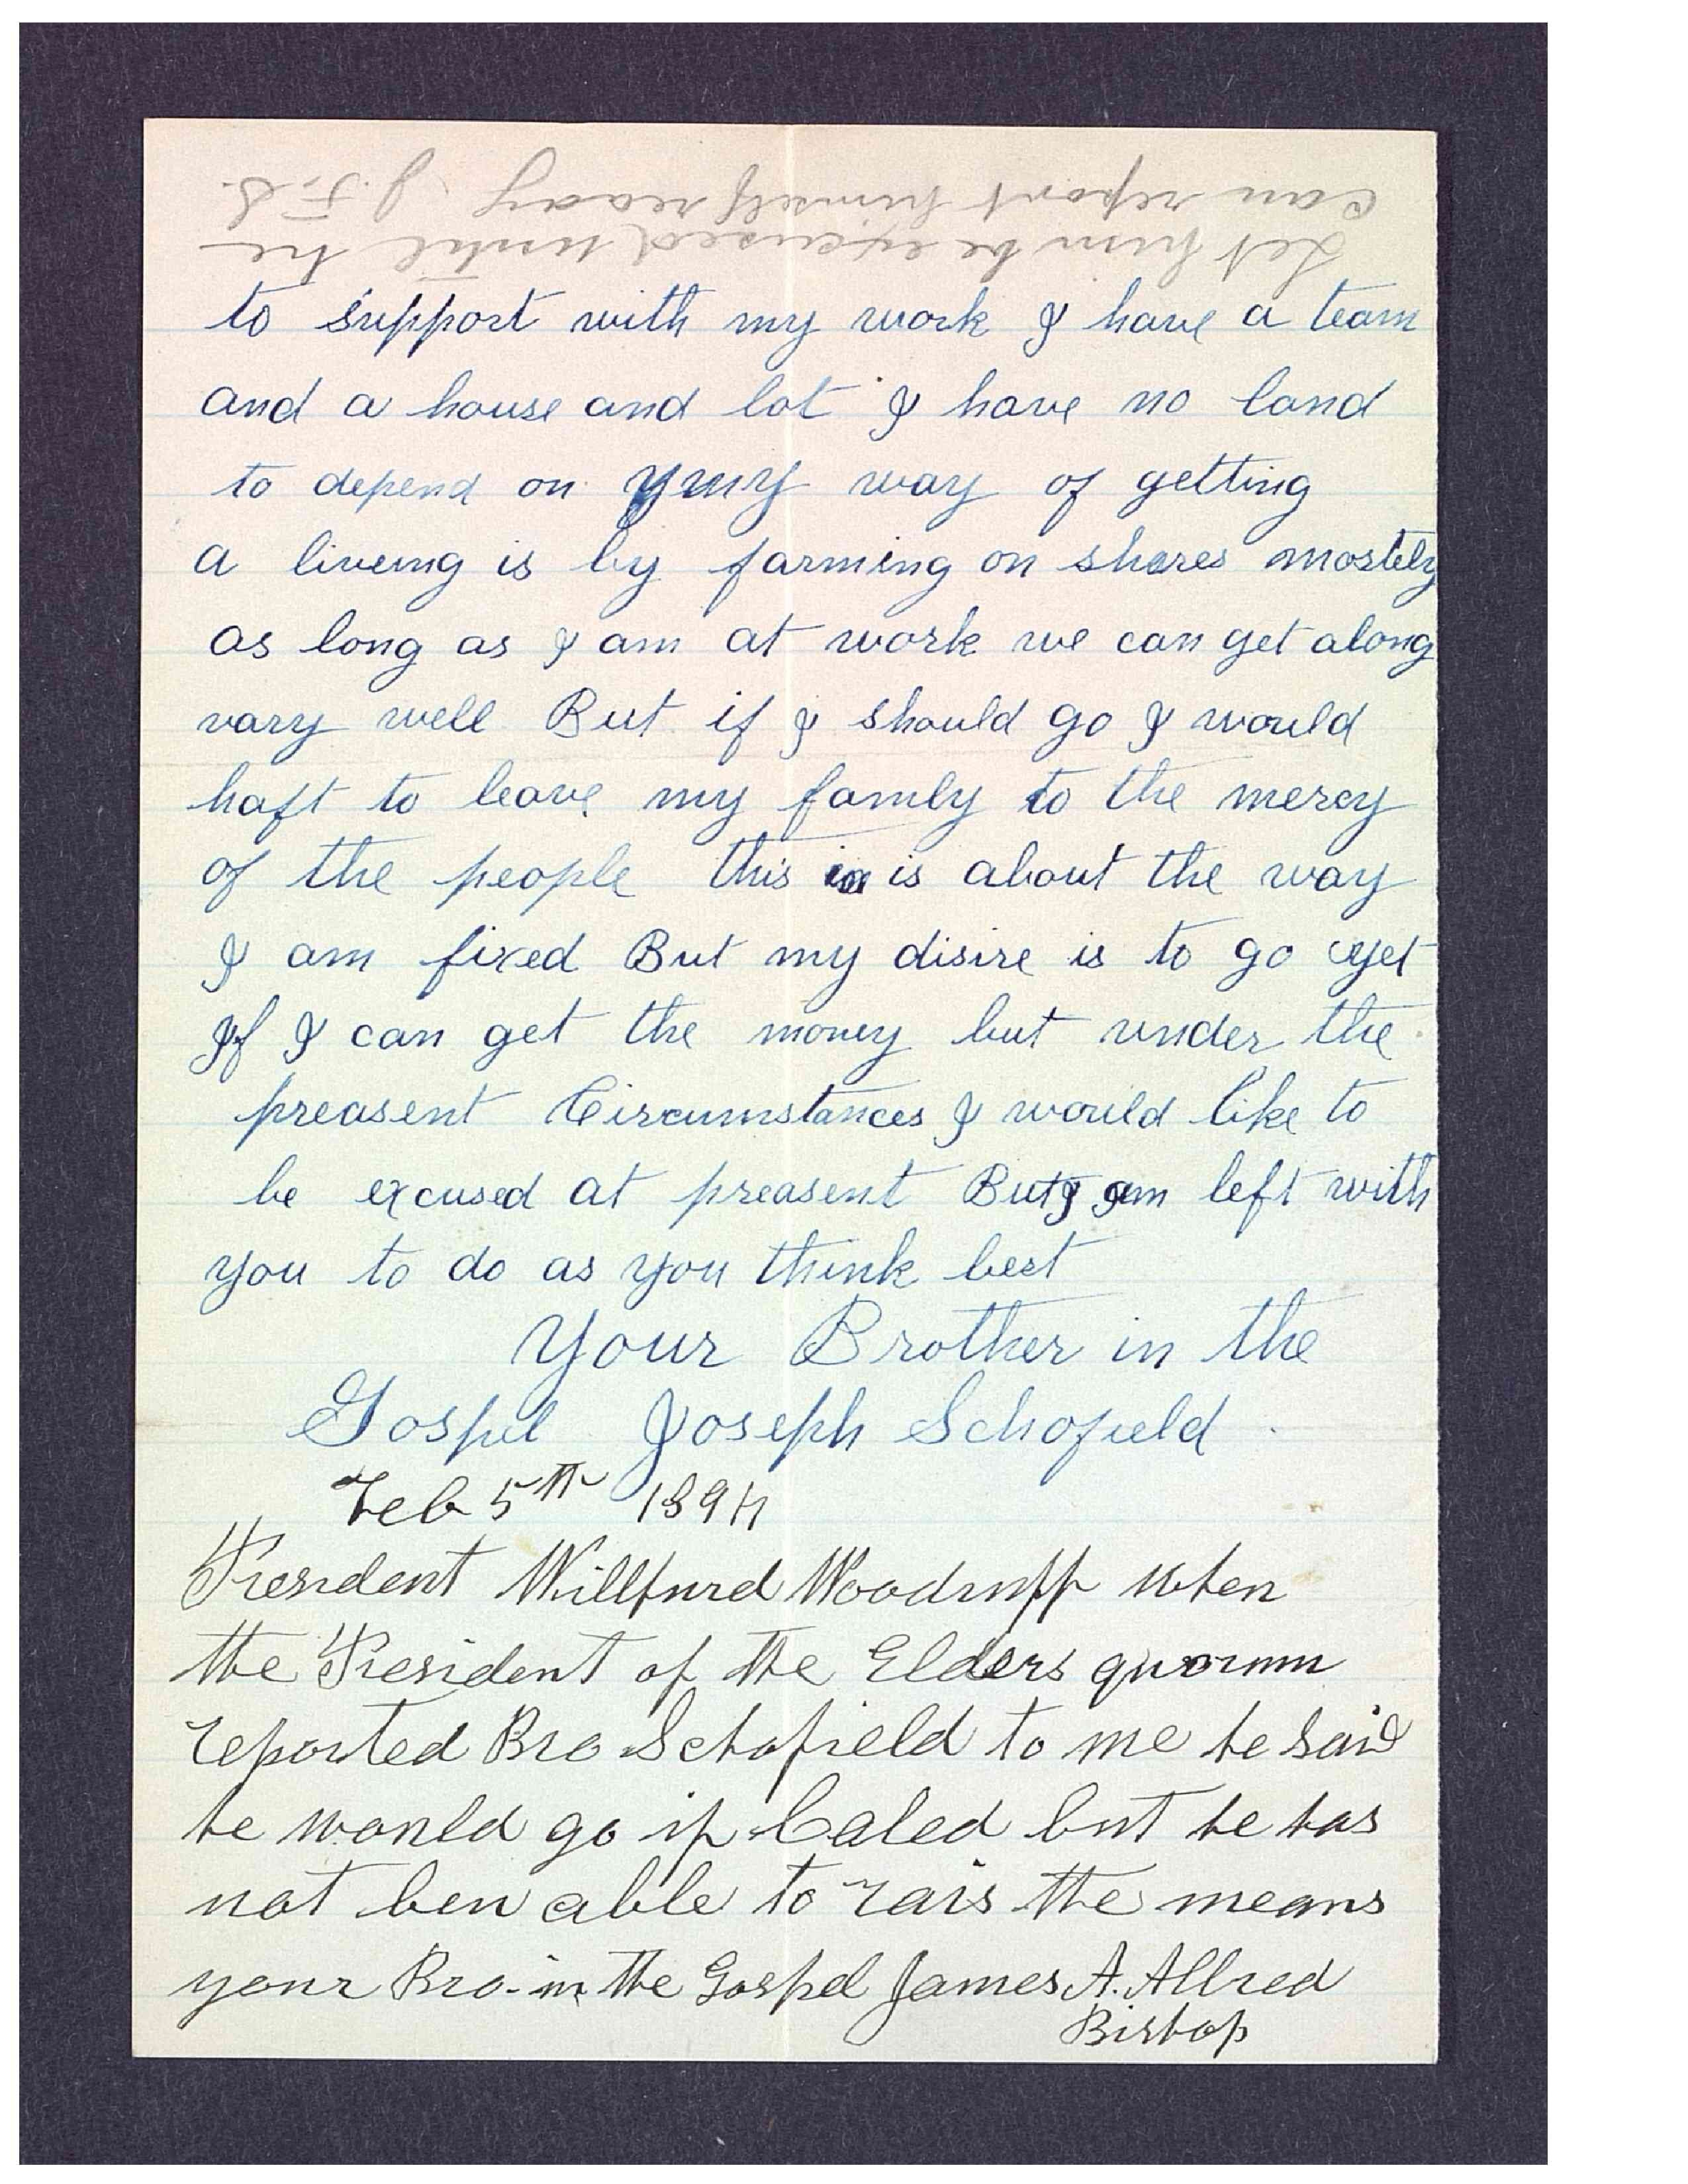 Let him be excused until he
can report himself ready J. F. S.
to support with my work I have a team
and a house and lot I have no land
to depend on my way of getting
a liveing is by farming on shares mostely
as long as I am at work we can get along
vary well But if I should go I would
haft to leave my famly to the mercy
of the people this is about the way
I am fixed But my disire is to go yet
If I can get the money but under the
preasent Circumstances I would like to
be excused at preasent But I am left with
you to do as you think best
Your Brother in the
Gospel Joseph Schofield
Feb 5th 1894
President Willfurd Woodruff when
the President of the Elders quorum
reported Bro Schofield to me he said
he would go if Caled but he has
not ben able to rais the means
your Bro. in the Gospel James A. Allred
Bishop